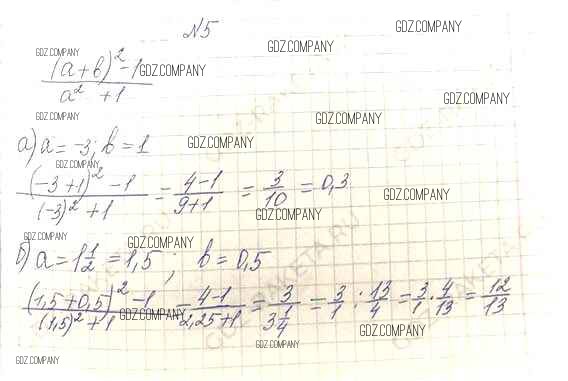 №5
GDZ.COMPANY
GDZ.COMPANY
GDZ.COMPANY
(a+b)² -1 GDZ.COMPANY
a² +1
GDZ.COMPANY
GDZ.COMPANY
GDZ.COMPANY
а) a = -3; b = 1
GDZ.COMPANY
GDZ.COMPANY
(-3+1)² -1 / (-3)² +1 = 4-1 / 9+1 = 3/10 = 0,3
GDZ.COMPANY
GDZ.COMPANY
GDZ.COMPANY
GDZ.COMPANY
б) a = 1 1/2 = 1,5 ; b = 0,5
(1,5+0,5)² -1 / (1,5)² +1 = 4-1 / 2,25+1 = 3 / 3 1/4 = 3/1 : 13/4 = 3/1 · 4/13 = 12/13
GDZ.COMPANY
GDZ.COMPANY
GDZ.COMPANY
GDZ.COMPANY